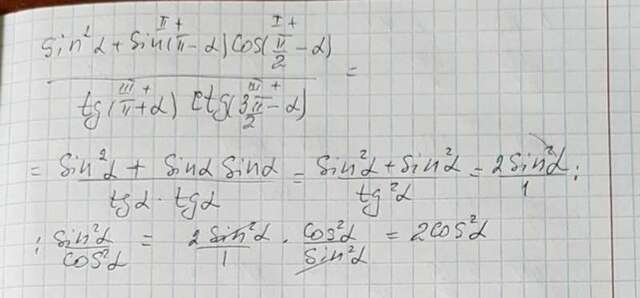 II + I +
sin²α + sin(π - α) cos(π/2 - α)
III + III +
tg(π + α) ctg(3π/2 - α) =
= sin²α + sinα sinα / tgα · tgα = sin²α + sin²α / tg²α = 2sin²α / 1 :
: sin²α / cos²α = 2sin²α / 1 · cos²α / sin²α = 2cos²α